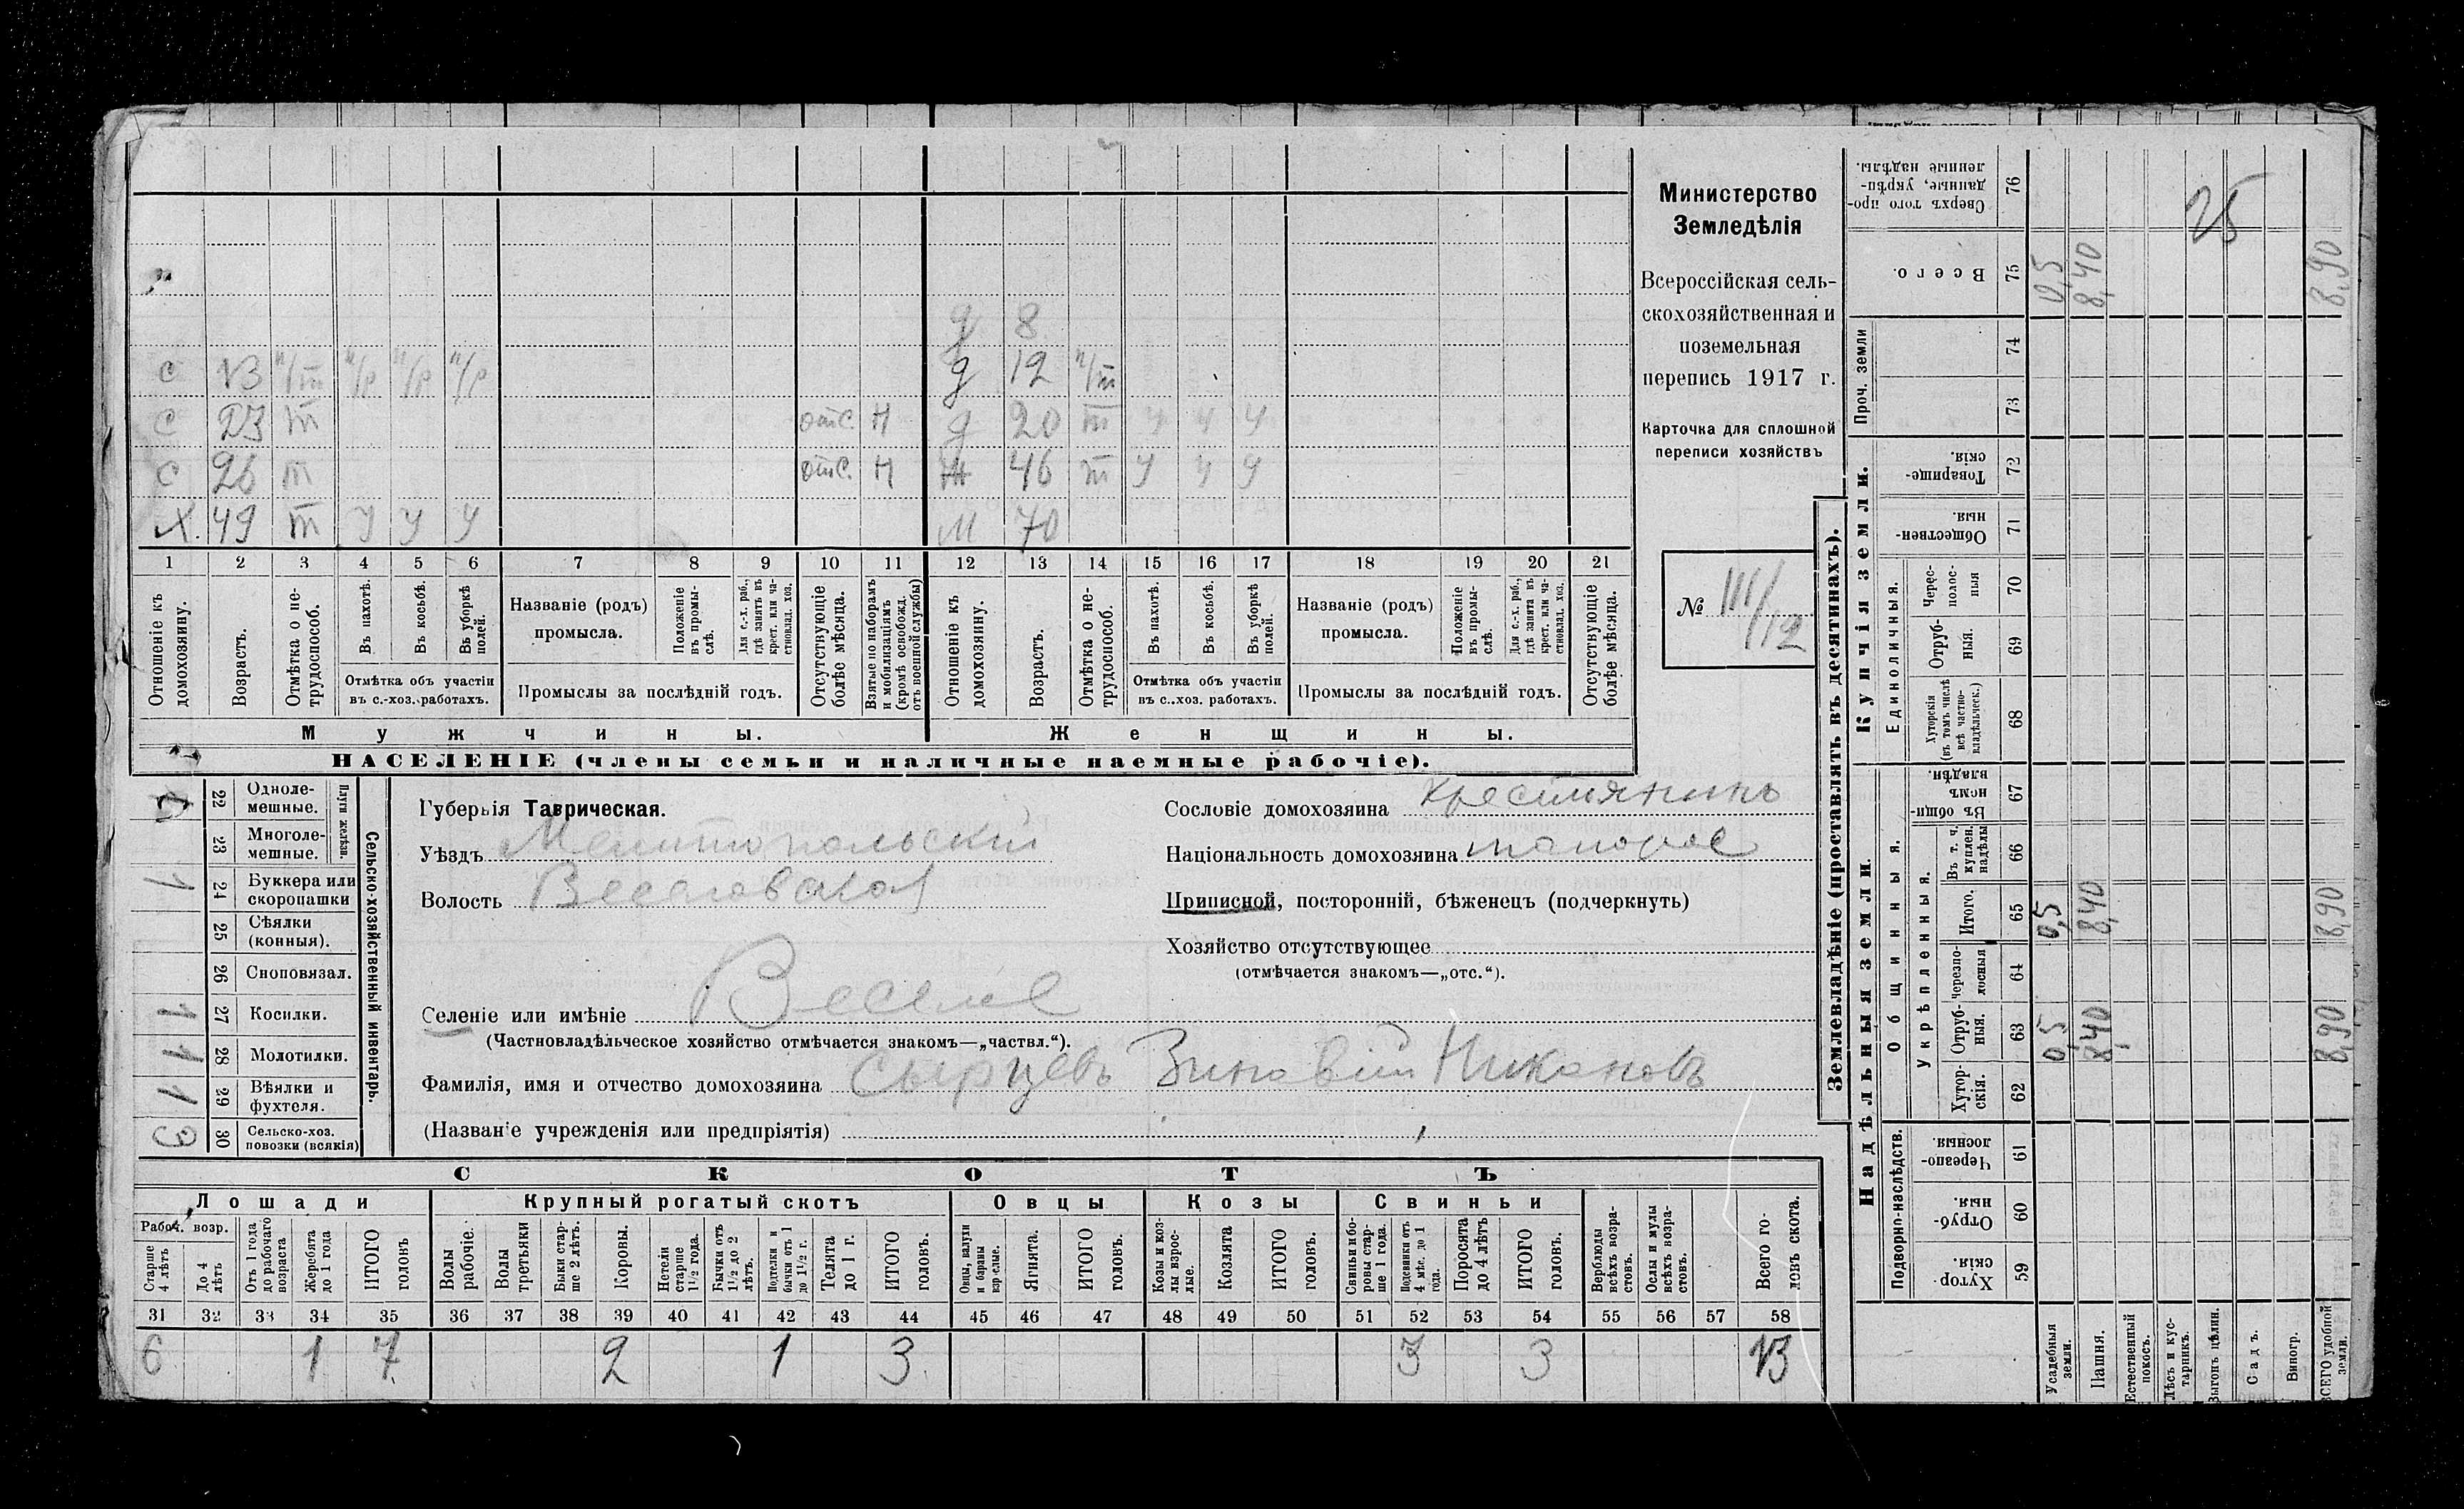 с 13 н/т н/р н/р н/р д 8
д 12 н/т
с 23 т отс. н д 20 т у у у
с 26 т отс. н ж 46 т у у у
х. 49 т у у у м 70
1 2 3 4 5 6 7 8 9 10 11 12 13 14 15 16 17 18 19 20 21
Отношеніе къ домохозяину.
Возрастъ.
Отмѣтка о нетрудоспособ.
Въ пахотѣ.
Въ косьбѣ.
Въ уборкѣ полей.
Отмѣтка объ участіи
въ с.-хоз. работахъ.
Названіе (родъ)
промысла.
Положеніе въ промыслѣ.
Для с.-х. раб., гдѣ занятъ въ крест. или частновлад. хоз.
Промыслы за послѣдній годъ.
Отсутствующіе болѣе мѣсяца.
Взятые по наборамъ и мобилизаціямъ (кромѣ освобожд. отъ военной службы)
Отношеніе къ домохозяину.
Возрастъ.
Отмѣтка о нетрудоспособ.
Въ пахотѣ.
Въ косьбѣ.
Въ уборкѣ полей.
Отмѣтка объ участіи
въ с.-хоз. работахъ.
Названіе (родъ)
промысла.
Положеніе въ промыслѣ.
Для с.-х. раб., гдѣ занята въ крест. или частновлад. хоз.
Промыслы за послѣдній годъ.
Отсутствующіе болѣе мѣсяца.
Мужчины. Женщины.
НАСЕЛЕНІЕ (члены семьи и наличные наемные рабочіе).
Министерство
Земледѣлія
Всероссійская сель-
скохозяйственная и
поземельная
перепись 1917 г.
Карточка для сплошной
переписи хозяйствъ
№ III/12
Сельско-хозяйственный инвентарь.
Плуги желѣзн.
22 Однолемешные.
23 Многолемешные.
1 24 Буккера или скоропашки
25 Сѣялки (конныя).
26 Сноповязал.
1 27 Косилки.
1 28 Молотилки.
1 29 Вѣялки и фухтеля.
3 30 Сельско-хоз. повозки (всякія)
Губернія Таврическая.
Уѣздъ Мелитопольскій
Волость Веселовская
Селеніе или имѣніе Веселое
(Частновладѣльческое хозяйство отмѣчается знакомъ—„частвл.“).
Фамилія, имя и отчество домохозяина Сырцевъ Зиновій Никоновъ
(Названіе учрежденія или предпріятія)
Сословіе домохозяина Крестьянинъ
Національность домохозяина
Приписной, посторонній, бѣженецъ (подчеркнуть)
Хозяйство отсутствующее
(отмѣчается знакомъ—„отс.“).
СКОТЪ
Лошади Крупный рогатый скотъ Овцы Козы Свиньи
Рабоч. возр.
Старше 4 лѣтъ
До 4 лѣтъ
Отъ 1 года до рабочаго возраста
Жеребята до 1 года
ИТОГО головъ
Волы рабочіе.
Волы третьяки
Быки старше 2 лѣтъ.
Коровы.
Нетели старше 1½ года.
Бычки отъ 1½ до 2 лѣтъ.
Подтелки и бычки отъ 1 до 1½ г.
Телята до 1 г.
ИТОГО головъ.
Овцы, валухи и бараны взрослые.
Ягнята.
ИТОГО головъ.
Козы и козлы взрослые.
Козлята
ИТОГО головъ.
Свиньи и боровы старше 1 года.
Подсвинки отъ 4 мѣс. до 1 года.
Поросята до 4 лѣтъ
ИТОГО головъ.
Верблюды всѣхъ возрастовъ.
Ослы и мулы всѣхъ возрастовъ.
Всего головъ скота.
31 32 33 34 35 36 37 38 39 40 41 42 43 44 45 46 47 48 49 50 51 52 53 54 55 56 57 58
6 1 7 2 1 3 3 3 13
Землевладѣніе (проставлять въ десятинахъ).
Купчія земли.
Надѣльныя земли.
Сверхъ того проданные, укрѣпленные надѣлы. 76
25
Всего. 75 0,5 8,40 8,90
Проч. земли 74
73
Товарищескія. 72
Общественныя. 71
Единоличныя.
Череcполосныя 70
Отрубныя. 69
Хуторскія (въ томъ числѣ всѣ частновладѣльческ.) 68
Общинныя.
Въ общинномъ владѣн. 67
Укрѣпленныя.
Въ т. ч. куплен. надѣлы 66
Итого. 65 0,5 8,40 8,90
Черезполосныя 64
Отрубныя. 63 0,5 8,40 8,90
Хуторскія. 62
Подворно-наслѣдств.
Черезполосныя. 61
Отрубныя. 60
Хуторскія. 59
Усадебныя земли.
Пашня.
Естественный покосъ.
Лѣсъ и кустарникъ.
Выгонъ цѣлин.
Садъ.
Виногр.
ВСЕГО удобной земли.